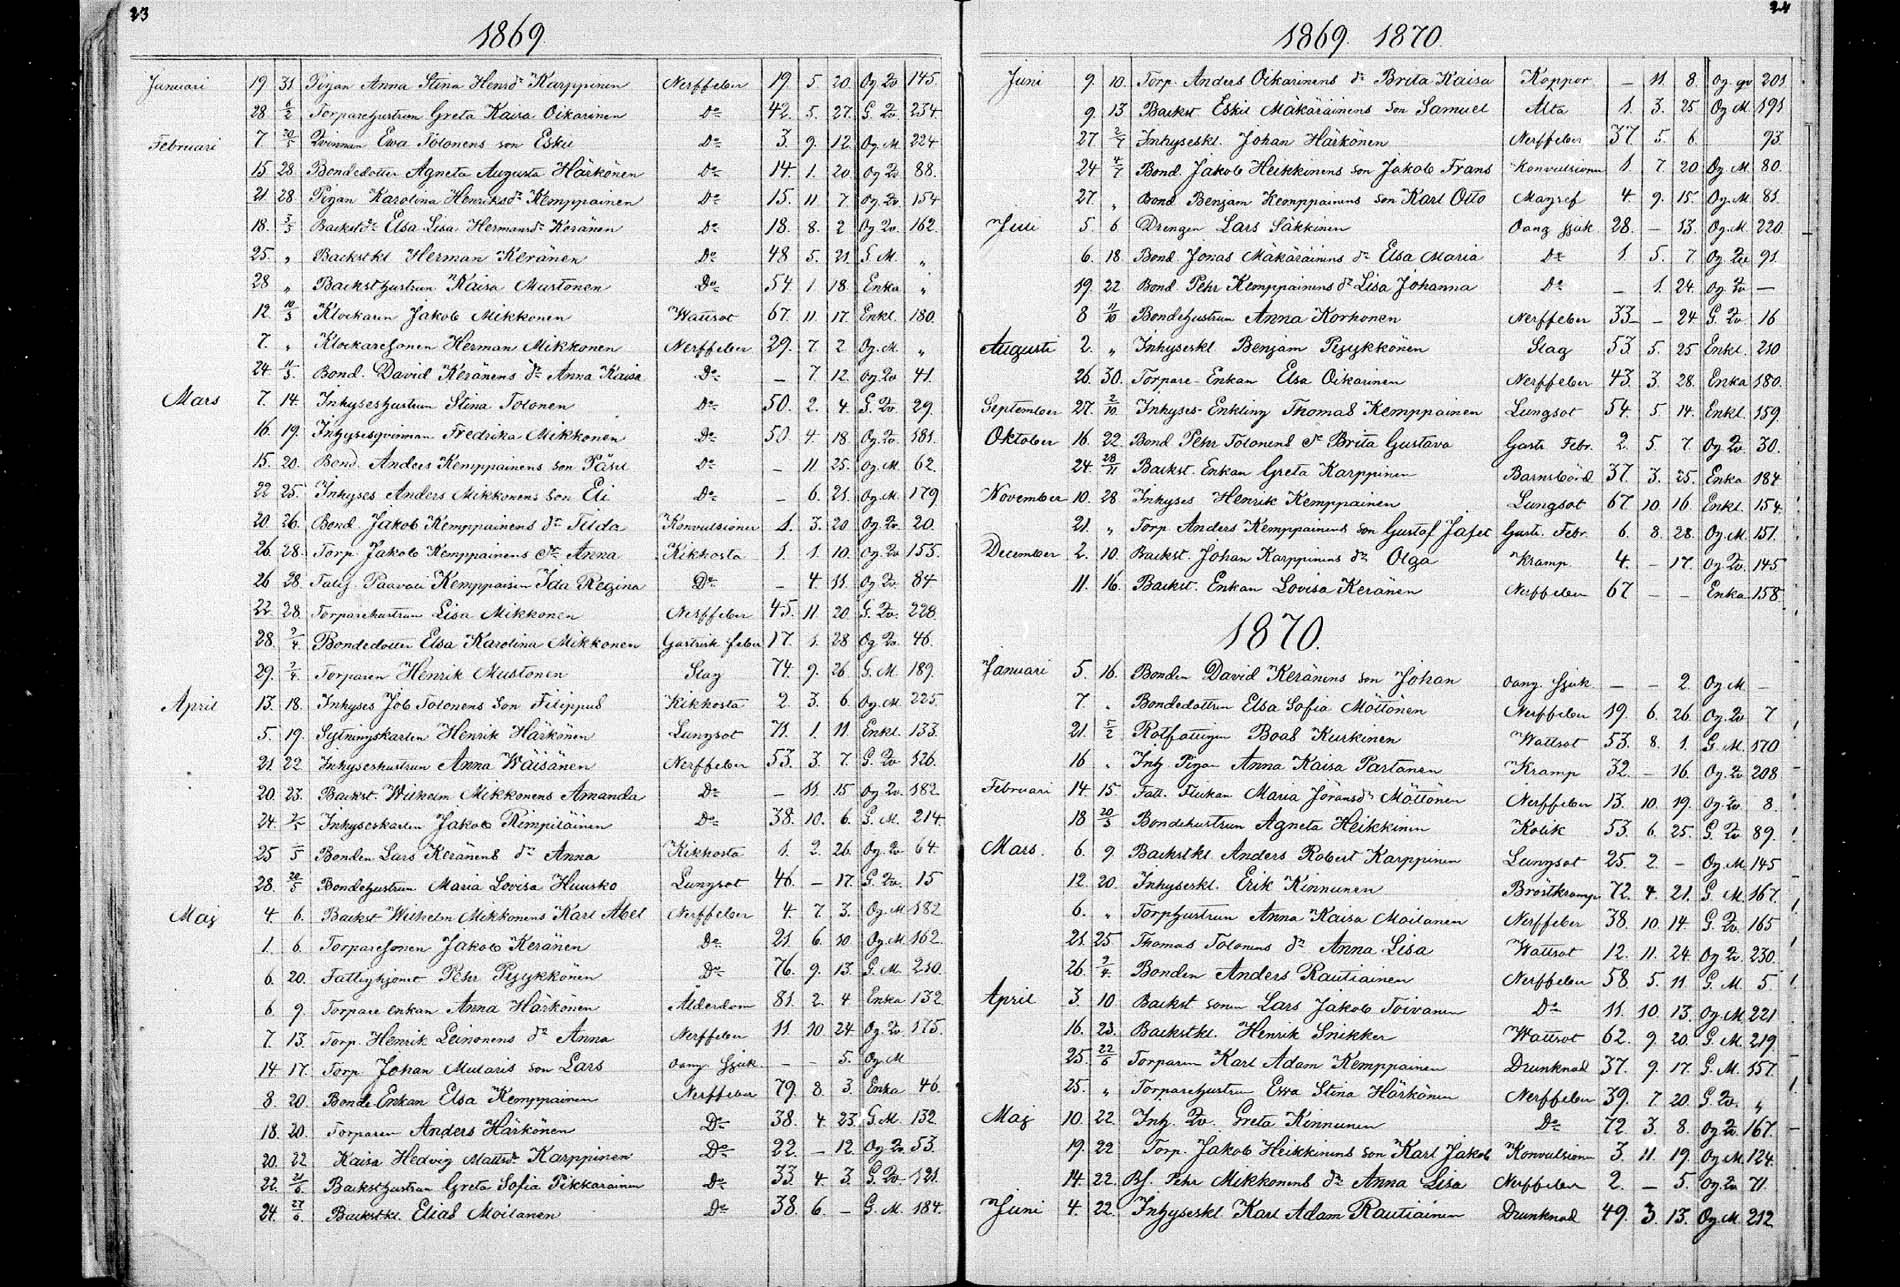 23
1869
Januari 19 31 Pigan Anna Stina Henrsdr Karppinen Nerffeber 19. 5. 20. Og Qv. 145.
28. 6/2 Torparehustrun Greta Kaisa Oikarinen Do 42. 5. 27. G. Qv. 234.
Februari 7 20/5 Qvinnan Ewa Tolonens son Eskil Do 3. 9. 12. Og. M. 224
15 28. Bondedotter Agneta Augusta Härkönen Do 14. 1. 20. Og Qv 88.
21. 28 Pigan Karolina Henriksdr Kemppainen Do 15. 11 7. Og. Qv. 154
18. 3/3 Backstdr Elsa Lisa Hermansdr Keränen Do 18. 8. 2 Og Qv. 162.
25. " Backstkl Herman Keränen Do 48 5. 21. G M. "
28 " Backsthustrun Kaisa Mustonen Do 54 1 18. Enka "
12. 10/3 Klockaren Jakob Mikkonen Wattsot 67. 11. 17. Enkl. 180.
7. " Klockaresonen Herman Mikkonen Nerffeber 29. 7. 2 Og. M. "
24 11/3. Bond. David Keränens dr Anna Kaisa Do – 7 12. Og Qv. 41.
Mars 7. 14. Inhyseshustrun Stina Tolonen Do 50. 2. 4. G. Qv. 29.
16. 19. Inhysesqvinnan Fredrika Mikkonen Do 50 4. 18. Og. Qv. 181.
15. 20. Bond. Anders Kemppainens son Påhl Do – 11. 25. Og. M. 62.
22 25. Inhyses Anders Mikkonens son Eli Do – 6. 21. Og. M. 179
20. 26. Bond Jakob Kemppainens dr Tilda Konvulsioner 1. 3. 20 Og. Qv. 20.
26. 28. Torp Jakob Kemppainens dr Anna Kikhosta 1. 1. 10. Og. Qv 155.
26 28. Fattig. Paavali Kemppaisen Ida Regina Do – 4. 11. Og Qv. 84
22 28. Torparehustrun Lisa Mikkonen Nerffeber 45. 11 20 G. Qv. 228.
28. 2/4 Bondedotter Elsa Karolina Mikkonen Gastrisk feber 17 1. 28 Og Qv. 46.
29. 2/4. Torparen Henrik Mustonen Slag 74. 9. 26 G. M. 189.
April 13. 18. Inhyses Job Tolonens son Filippus Kikhosta 2 3. 6. Og. M. 225.
5. 19. Sytningskarlen Henrik Härkönen Lungsot 71. 1. 11 Enkl. 133.
21. 22 Inhyseshustrun Anna Wäisänen Nerffeber 53. 3. 7. G. Qv 126.
20. 23. Backst. Wilhelm Mikkonens Amanda Do – 11 15 Og Qv. 182
24. 2/5 Inhyseskarlen Jakob Kempiläinen Do 38. 10. 6. G. M. 214.
25 –/5 Bonden Lars Keränens dr Anna Kikhosta 1. 2. 26. Og. Qv 64.
28. 20/5 Bondehustrun Maria Lovisa Huusko Lungsot 46. – 17. G. Qv. 15
Maj 4. 6. Backst Wilhelm Mikkonens Karl Abel Nerffeber 4. 7 3. Og. M. 182
1. 6. Torparesonen Jakob Keränen Do 21. 6. 10. Og. M. 162.
6. 20. Fattighjonet Pehr Pyykkönen Do 76. 9. 13. G. M. 210.
6. 9. Torpare enkan Anna Härkönen Ålderdom 81. 2. 4 Enka 132
7. 13. Torp. Henrik Leinonens dr Anna Nerffeber 11. 10. 24. Og. Qv. 175.
14. 17. Torp Johan Mularis son Lars oang. sjuk. – – 5. Og. M.
8. 20. Bonde Enkan Elsa Kemppainen Nerffeber 79. 8 3. Enka 46.
18. 20. Torparen Anders Härkönen Do 38. 4 23. G. M. 132.
20. 22 Kaisa Hedvig Mattsdr Karppinen Do 22. – 12. Og Qv. 53.
22. 21/6 Backsthustrun Greta Sofia Pikkarainen Do 33. 4. 3. G. Qv. 121.
24. 27/6. Backstkl. Elias Moilanen Do 38. 6. – G. M. 184.
24
1869. 1870.
Juni 9. 10. Torp. Anders Oikarinens dr Brita Kaisa Koppor – 11. 8. Og. qv 201
9. 13 Backst Eskil Mäkäräinens son Samuel Alta 1. 3. 25. Og M. 191
27 2/7 Inhyseskl. Johan Härkönen Nerffeber 37. 5. 6. 93.
24 4/7 Bond. Jakob Heikkinens son Jakob Frans Konvulsioner 1. 7. 20 Og M. 80.
27. " Bond Benjam Kemppainens son Karl Otto Magref 4. 9. 15. Og. M. 81.
Juli 5. 6 Drengen Lars Säkkinen Oang sjuk 28. – 13. Og. M. 220.
6. 18. Bond Jonas Mäkäräinens dr Elsa Maria Do 1 5. 7. Og. Qv. 91.
19. 22 Bond Pehr Kemppainens dr Lisa Johanna Do – 1. 24. Og. Qv —
8 11/10 Bondehustrun Anna Korhonen Nerffeber 33 – 24. G. Qv. 16
Augusti 2. " Inhyseskl Benjam Pyykkönen Slag 53. 5. 25 Enkl. 210
26. 30. Torpare-Enkan Elsa Oikarinen Nerffeber 43. 3. 28. Enka 180.
September 27. 2/10. Inhyses-Enkling Thomas Kemppainen Lungsot 54. 5 14. Enkl. 159.
Oktober 16. 22. Bond Pehr Tolonens dr Brita Gustava Gastr. Febr. 2. 5 7. Og Qv. 30.
24. 28/11 Backst. Enkan Greta Karppinen Barnsbörd 37. 3. 25. Enka 184
November 10. 28 Inhyses Henrik Kemppainen Lungsot 67. 10. 16. Enkl. 154.
21. " Torp Anders Kemppainens son Gustaf Jafet Gastr. Febr. 6. 8. 28. Og. M. 151.
December 2. 10. Backst. Johan Karppinens dr Olga Kramp 4. – 17. Og. Qv. 145
11. 16. Backst. Enkan Lovisa Keränen Nerffeber 67 – – Enka 158.
1870.
Januari 5. 16. Bonden David Keränens son Johan oang. sjuk – – 2. Og M. –
7. " Bondedottren Elsa Sofia Möttönen Nerffeber 19. 6. 26. Og. Qv 7
21. 5/2 Rotfattigen Boas Kurkinen Wattsot 53. 8. 1. G. M. 170
16 " Inh. Pigan Anna Kaisa Partanen Kramp 32. – 16. Og. Qv 208
Februari 14. 15. Fatt. Flickan Maria Jöransdr Möttönen Nerffeber 13. 10. 19. Og. Qv. 8.
18 20/3 Bondehustrun Agneta Heikkinen Kolik 53. 6. 25. G. Qv 89.
Mars. 6. 9 Backstkl. Anders Robert Karppinen Lungsot 25 2. – Og. M. 145
12. 20. Inhyseskl. Erik Kinnunen Bröstkramp 72. 4. 21. G. M. 167.
6. " Torphustrun Anna Kaisa Moilanen Nerffeber 38. 10. 14. G. Qv. 165
21. 25 Thomas Tolonens dr Anna Lisa Wattsot 12. 11. 24. Og Qv. 230.
26. 2/4. Bonden Anders Rautiainen Nerffeber 58. 5. 11. G. M. 5.
April 3. 10. Backst sonen Lars Jakob Toivanen Do 11. 10. 13. Og. M. 221.
16. 23. Backstkl. Henrik Snikker Wattsot 62. 9. 20. G. M. 219.
25. 22/6 Torparen Karl Adam Kemppainen Drunknad 37. 9. 17. G. M. 157.
25. " Torparehustrun Ewa Stina Härkönen Nerffeber 39. 7 20. G. Qv. "
Maj 10. 22. Inh. Qv. Greta Kinnunen Do 72. 3. 8. Og Qv. 167.
19. 22 Torp. Jakob Heikkinens son Karl Jakob Konvulsion 3. 11. 19. Og. M. 124.
14. 22. Bf. Pehr Mikkonens dr Anna Lisa Nerffeber 2. – 5. Og. Qv 71.
Juni 4. 22. Inhyseskl Karl Adam Rautiainen Drunknad 49. 3. 13. Og. M. 212